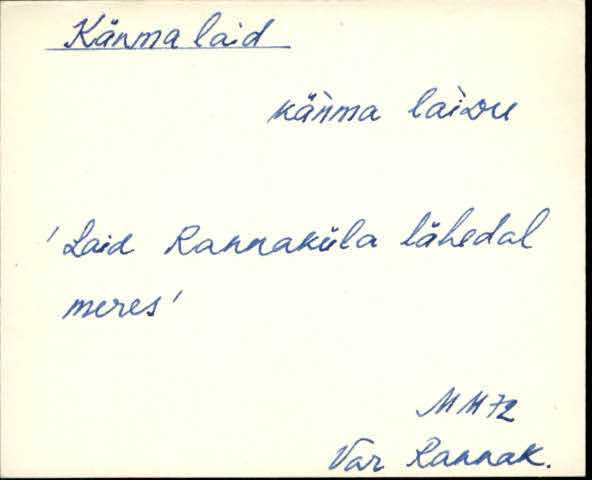 Känma laid
kä̀nma laìdu
'Laid Rannaküla lähedal
meres'
MM72
Var Rannak.